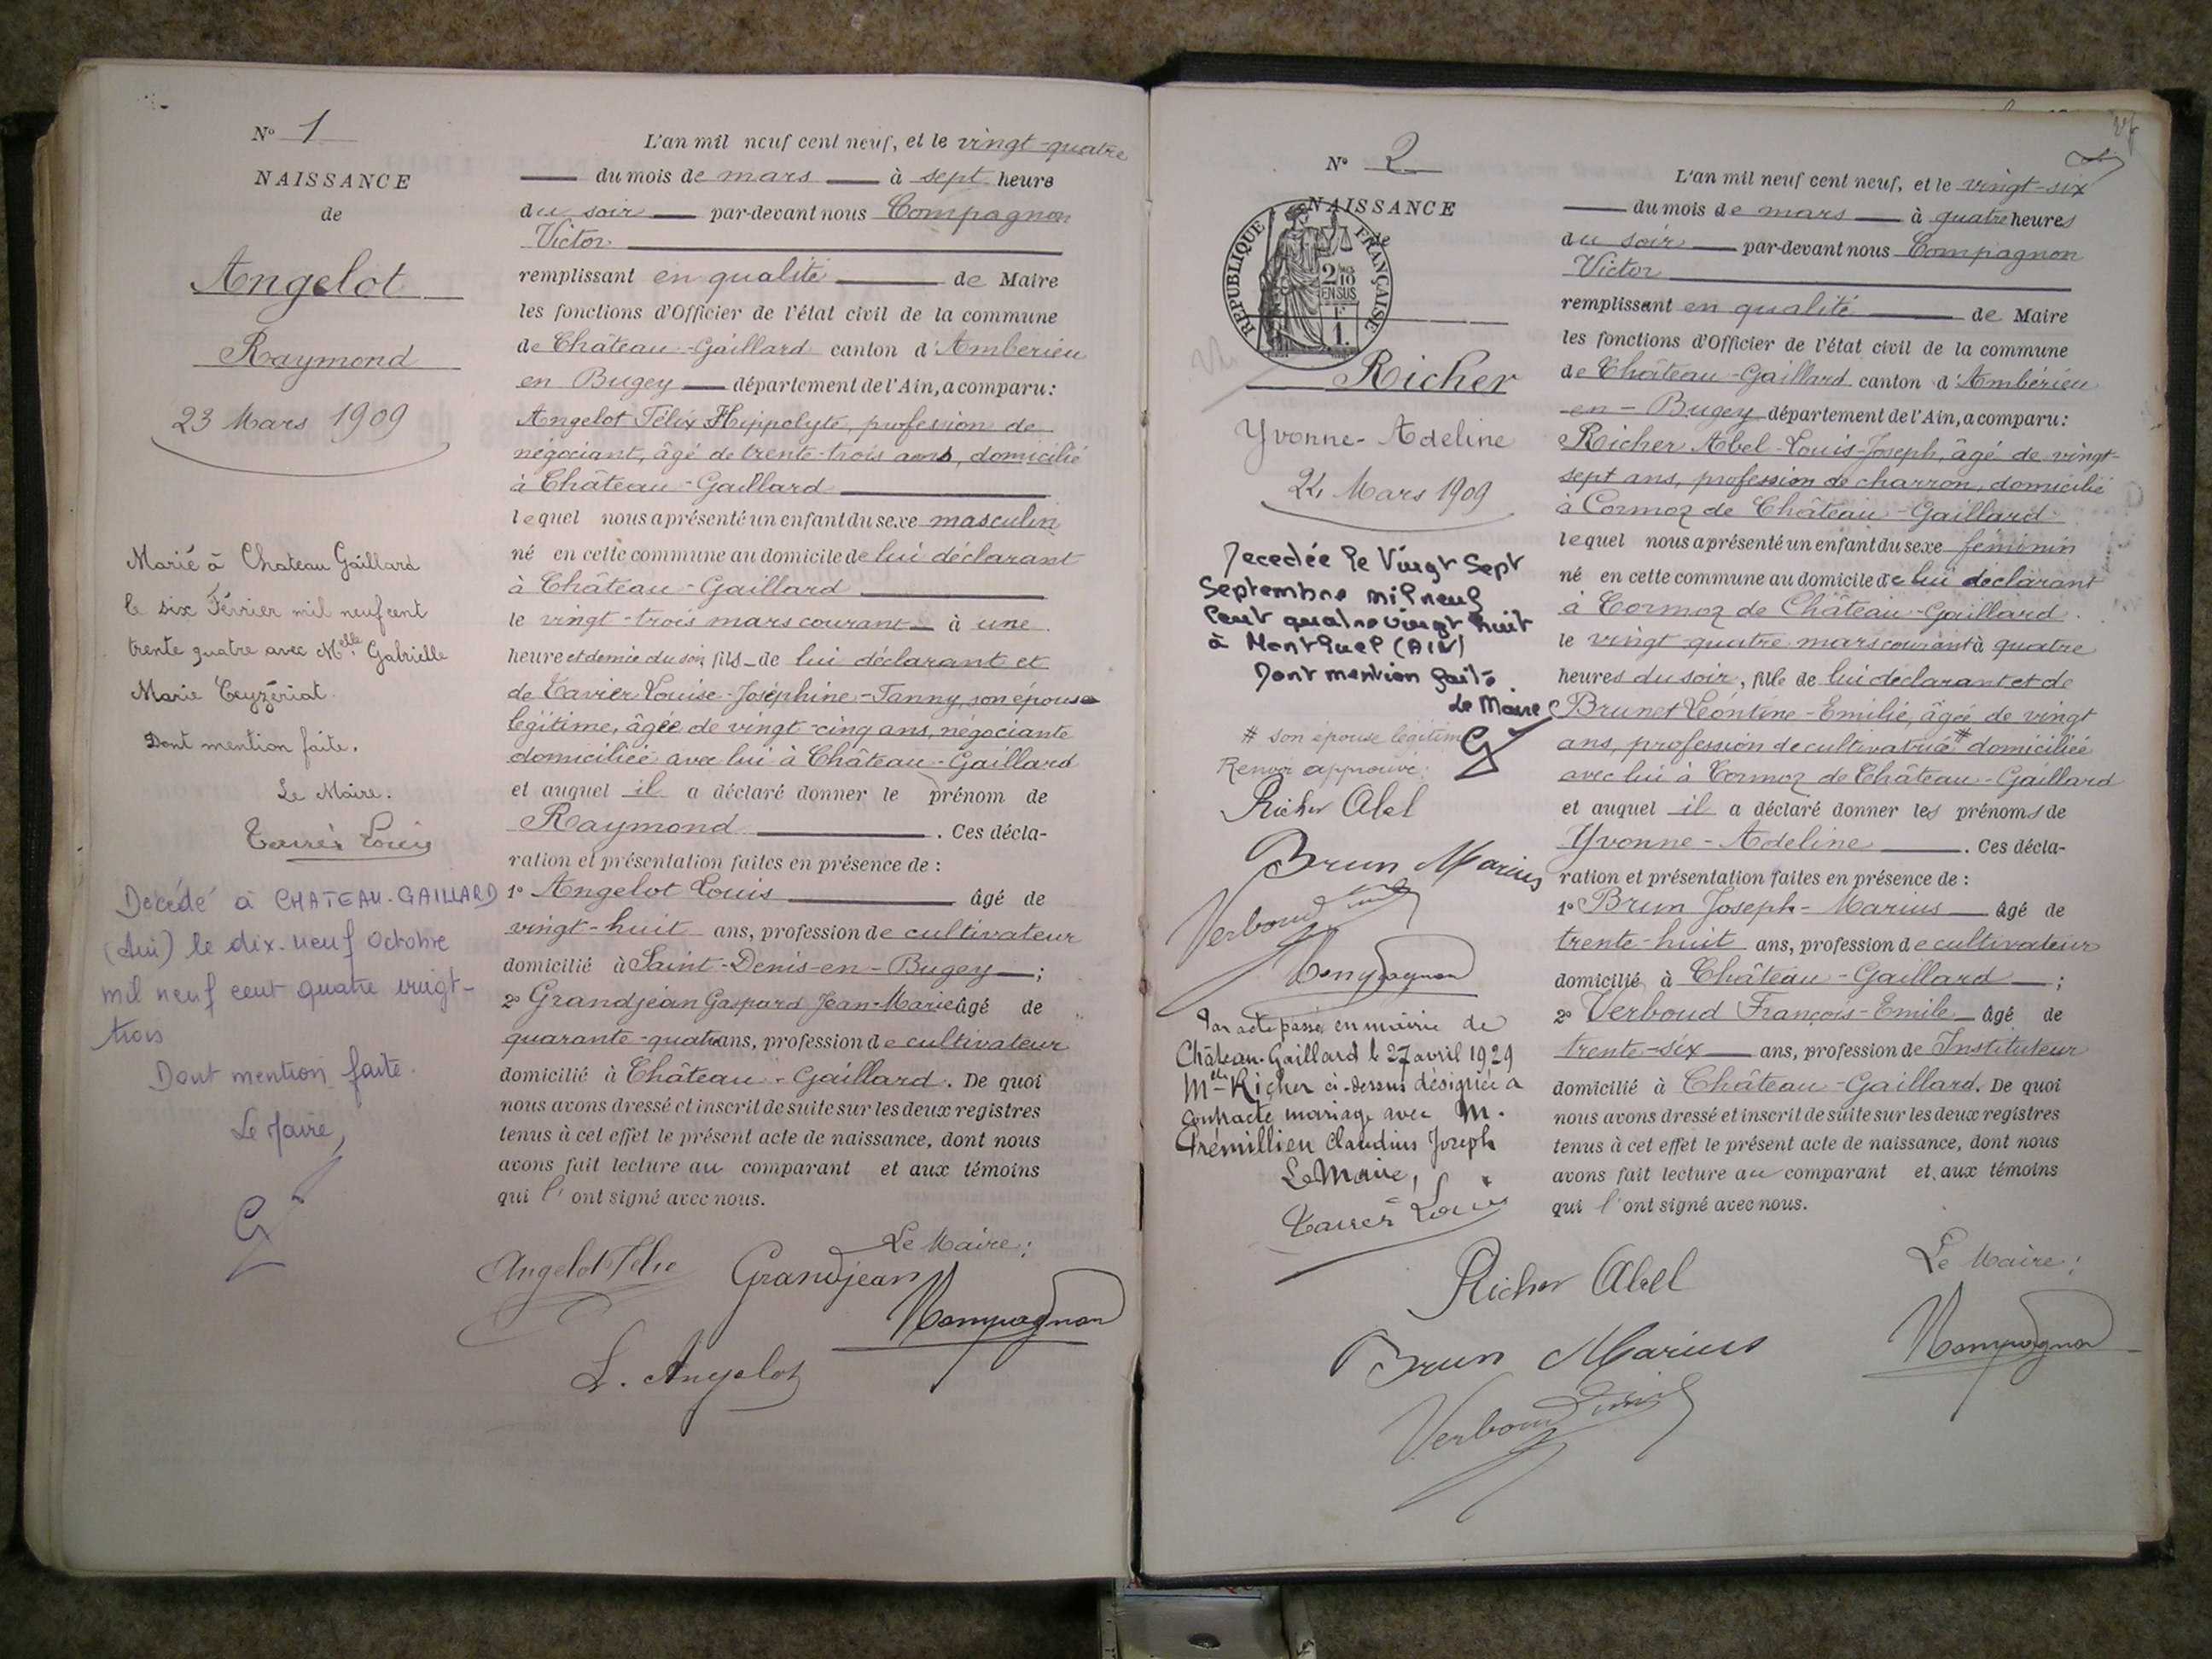 N° 1
NAISSANCE
de
Angelot
Raymond
23 Mars 1909
Marié à Chateau Gaillard
le six Février mil neuf cent
trente quatre avec Melle Gabrielle
Marie Teyzériat.
Dont mention faite.
Le Maire.
Décédé à CHATEAU-GAILLARD
(Ain) le dix-neuf Octobre
mil neuf cent quatre vingt-
trois
Dont mention faite.
Le Maire,
L'an mil neuf cent neuf, et le vingt-quatre
du mois de mars à sept heure
du soir par-devant nous Compagnon
Victor
remplissant en qualité de Maire
les fonctions d'Officier de l'état civil de la commune
de Château-Gaillard canton d'Ambérieu
en Bugey département de l'Ain, a comparu:
Angelot Félix Hippolyte, profession de
négociant, âgé de trente-trois ans, domicilié
à Château-Gaillard
lequel nous a présenté un enfant du sexe masculin
né en cette commune au domicile de lui déclarant
à Château-Gaillard
le vingt-trois mars courant à une
heure et demie du soir, fils de lui déclarant et
de Tavier Louise-Joséphine-Fanny, son épouse
légitime, âgée de vingt-cinq ans, négociante
domiciliée avec lui à Château-Gaillard
et auquel il a déclaré donner le prénom de
Raymond. Ces décla-
ration et présentation faites en présence de :
1° Angelot Louis âgé de
vingt-huit ans, profession de cultivateur
domicilié à Saint-Denis-en-Bugey ;
2° Grandjean Gaspard Jean-Marie âgé de
quarante-quatre ans, profession de cultivateur
domicilié à Château-Gaillard. De quoi
nous avons dressé et inscrit de suite sur les deux registres
tenus à cet effet le présent acte de naissance, dont nous
avons fait lecture au comparant et aux témoins
qui l'ont signé avec nous.
Le Maire:
Angelot Félix Grandjean
Compagnon
L. Angelot
N° 2
NAISSANCE
de
REPUBLIQUE FRANÇAISE
2/10
EN SUS
1.
Richer
Yvonne-Adeline
24 Mars 1909
Decedée le Vingt Sept
Septembre mil neuf
Cent quatre vingt huit
à Montluel (AIN)
Dont mention faite
Le Maire
# son épouse légitime
Renvoi approuvé:
Richer Abel
Brun Marius
Verboud
Compagnon
Par acte passé en mairie de
Château-Gaillard le 27 avril 1929
Melle Richer ci-dessus désignée a
contracté mariage avec M.
Trémillien Claudius Joseph
Le Maire,
L'an mil neuf cent neuf, et le vingt-six
du mois de mars à quatre heures
du soir par-devant nous Compagnon
Victor
remplissant en qualité de Maire
les fonctions d'Officier de l'état civil de la commune
de Château-Gaillard canton d'Ambérieu
en-Bugey département de l'Ain, a comparu:
Richer Abel-Louis-Joseph, âgé de vingt-
sept ans, profession de charron, domicilié
à Cormoz de Château-Gaillard
lequel nous a présenté un enfant du sexe féminin
né en cette commune au domicile de lui déclarant
à Cormoz de Château-Gaillard.
le vingt-quatre mars courant à quatre
heures du soir, fille de lui déclarant et de
Brunet Léontine-Emilie, âgée de vingt
ans, profession de cultivatrice # domiciliée
avec lui à Cormoz de Château-Gaillard
et auquel il a déclaré donner les prénoms de
Yvonne-Adeline. Ces décla-
ration et présentation faites en présence de :
1° Brun Joseph-Marius âgé de
trente-huit ans, profession de cultivateur
domicilié à Château-Gaillard ;
2° Verboud François-Emile âgé de
trente-six ans, profession de Instituteur
domicilié à Château-Gaillard. De quoi
nous avons dressé et inscrit de suite sur les deux registres
tenus à cet effet le présent acte de naissance, dont nous
avons fait lecture au comparant et aux témoins
qui l'ont signé avec nous.
Le Maire:
Richer Abel
Compagnon
Brun Marius
Verboud